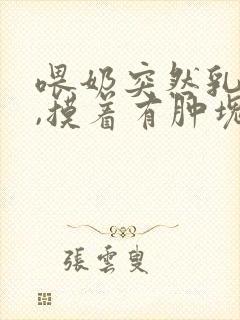 喂奶突然乳
,摸着有肿块
張雲叟